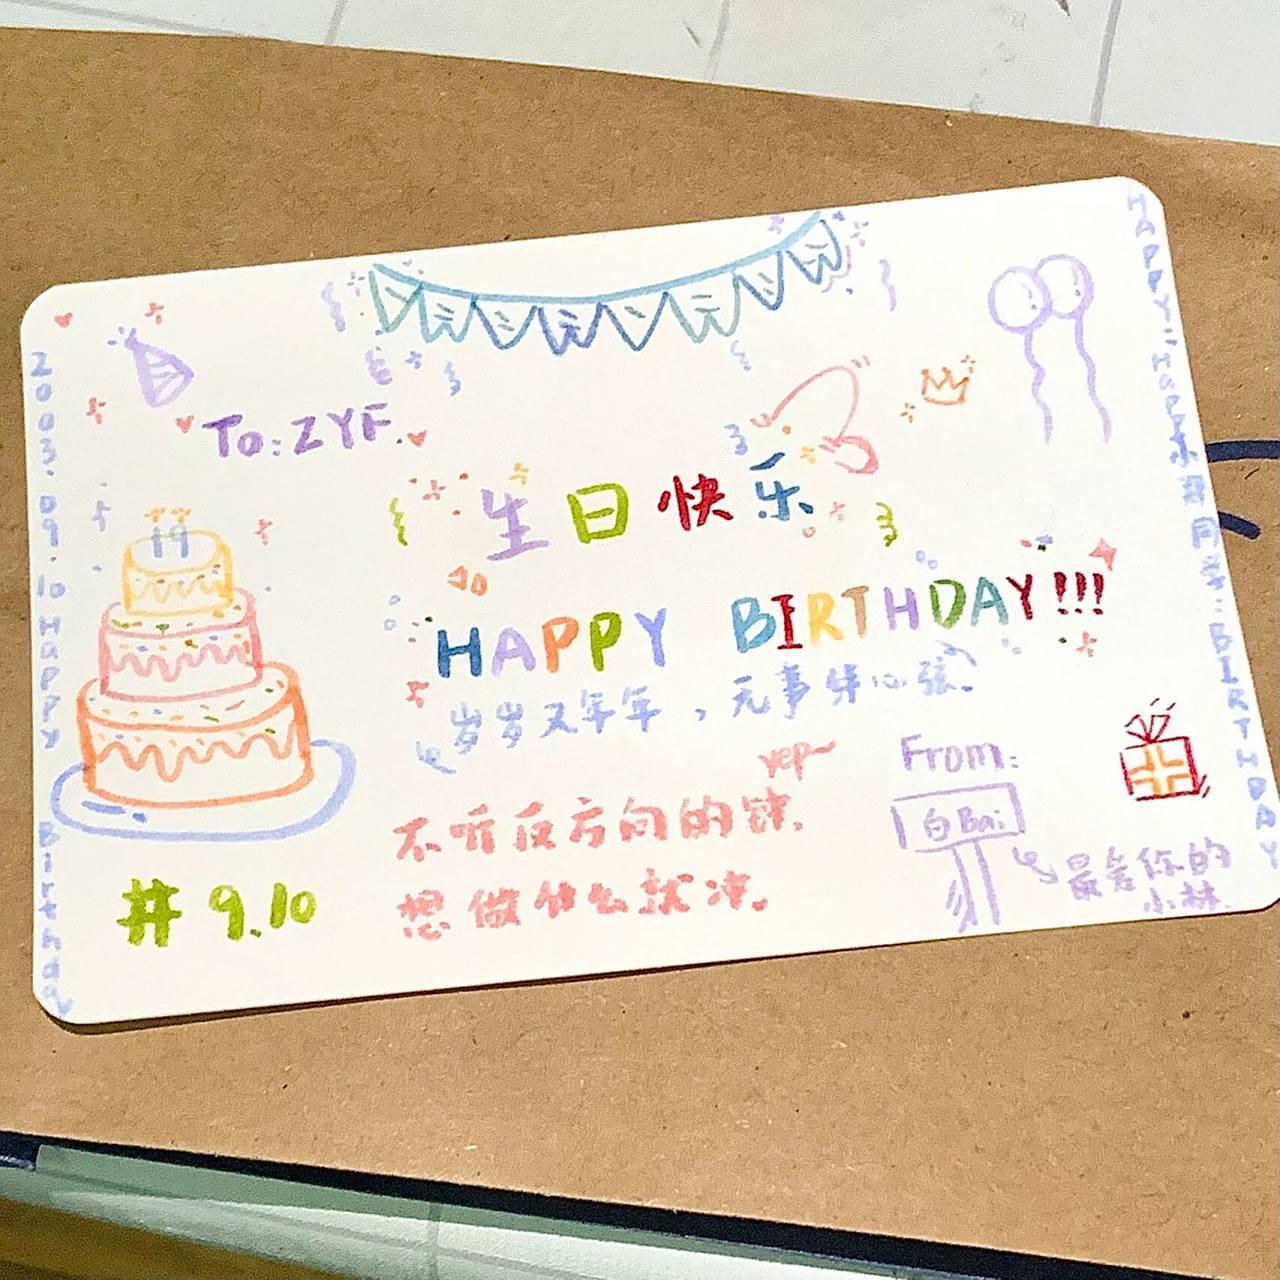 To: ZYF.
19
生日快乐
HAPPY BIRTHDAY!!!
岁岁又年年，无事绊心弦。
yep~
不听反方向的钟，
想做什么就冲。
From:
白Bai
最爱你的
小林
# 9.10
2003.09.10 Happy Birthday
HAPPY:Happy 同学:BIRTHDAY